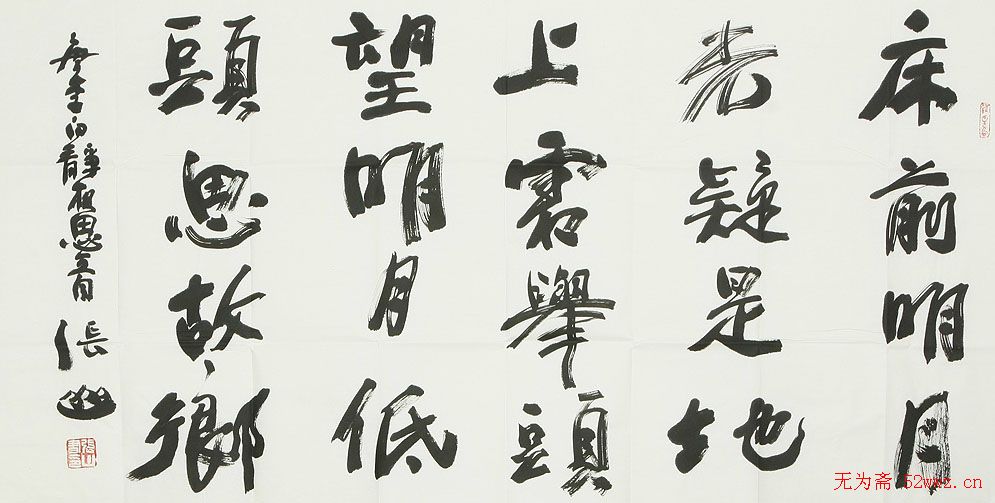 床前明月
光疑是地
上霜舉頭
望明月低
頭思故鄉
李白靜夜思
无为斋 52wwz.cn